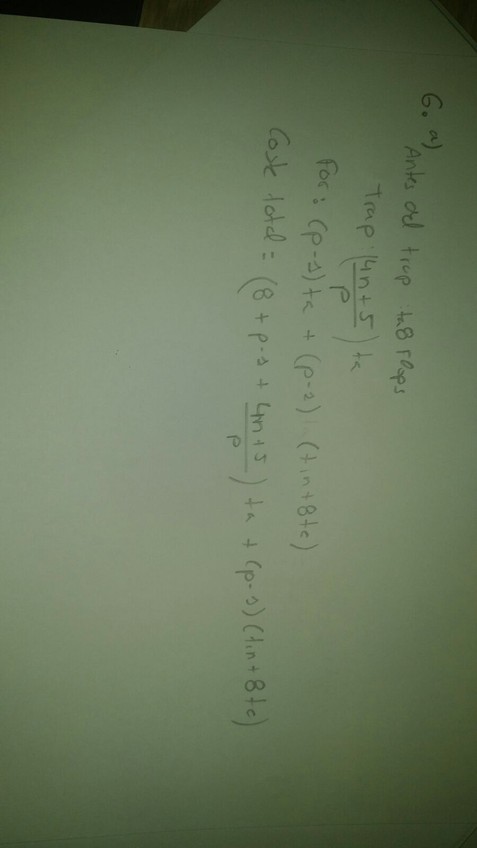 6. a)
Antes del trap: ta 8 flops
Trap: (4n+5/p) ta
For: (p-1)ta + (p-1) (tin+8tc)
Coste total = (8 + p-1 + 4n+5/p) ta + (p-1)(tin+8tc)